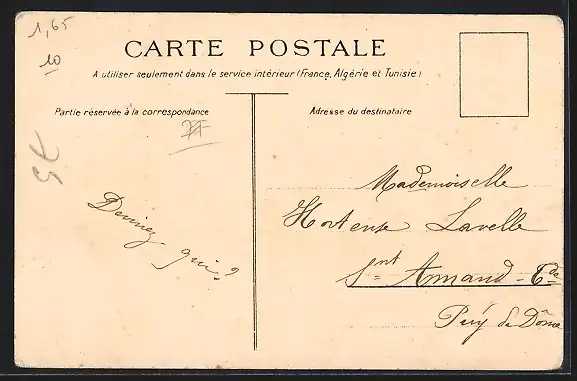 1,65
10
CARTE POSTALE
A utiliser seulement dans le service intérieur (France, Algérie et Tunisie)
Partie réservée à la correspondance
Adresse du destinataire
75
Devinez
qui?
Mademoiselle
Hortense Lavelle
Snt Amand - Tde
Puy de Dôme